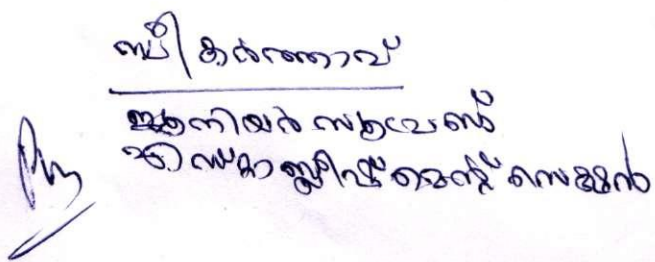 സ്വീകർത്താവ്
ജൂനിയർ സൂപ്രണ്ട്
എസ്റ്റാബ്ലിഷ്മെന്റ് സെക്ഷൻ